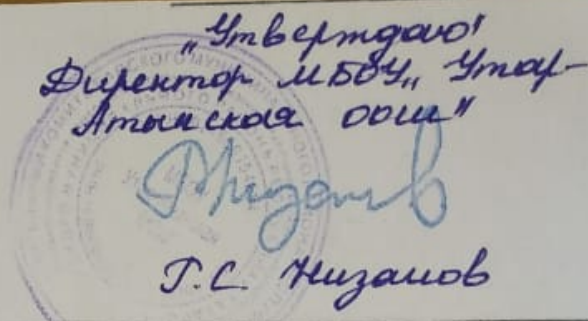 „Утверждаю"
Директор МБОУ „Утар-
Атынская оош"
Г.С. Низамов